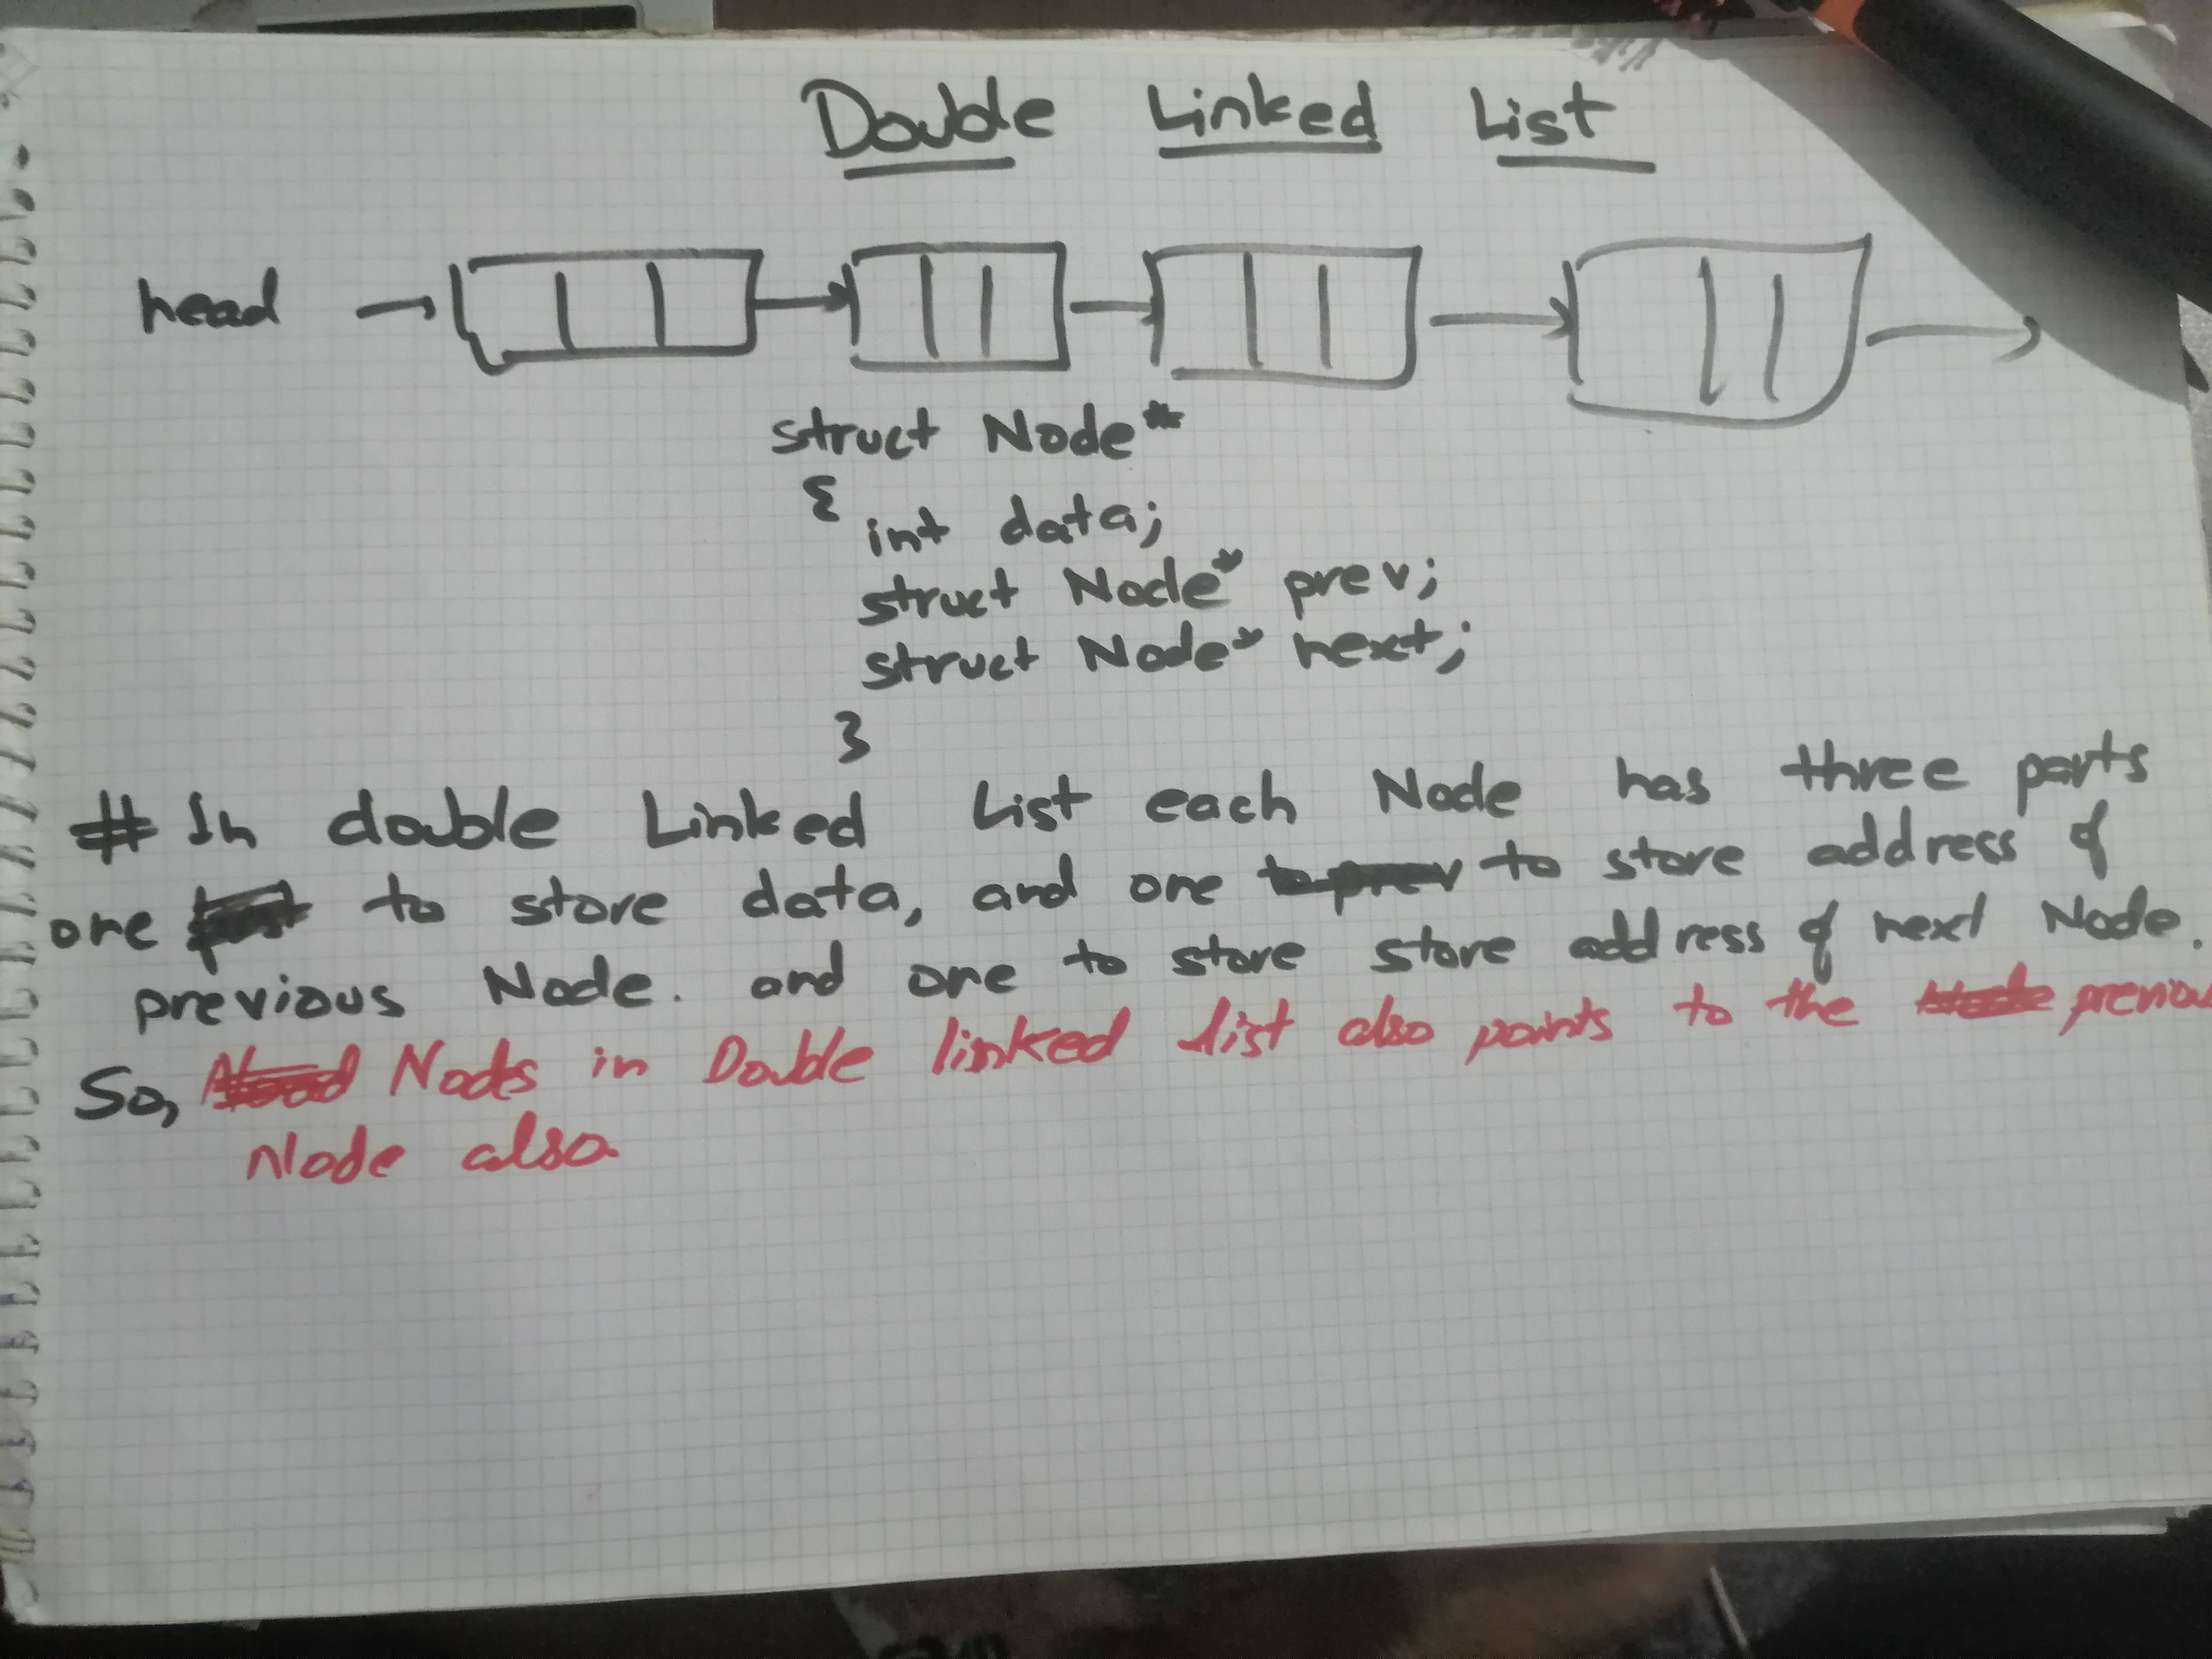 Double Linked List
head
struct Node*
{
int data;
struct Node* prev;
struct Node* next;
}
# In double Linked List each Node has three parts
one to store data, and one to store address of
previous Node. and one to store store address of next Node.
So, Nodes in Double linked list also points to the previou
Node also